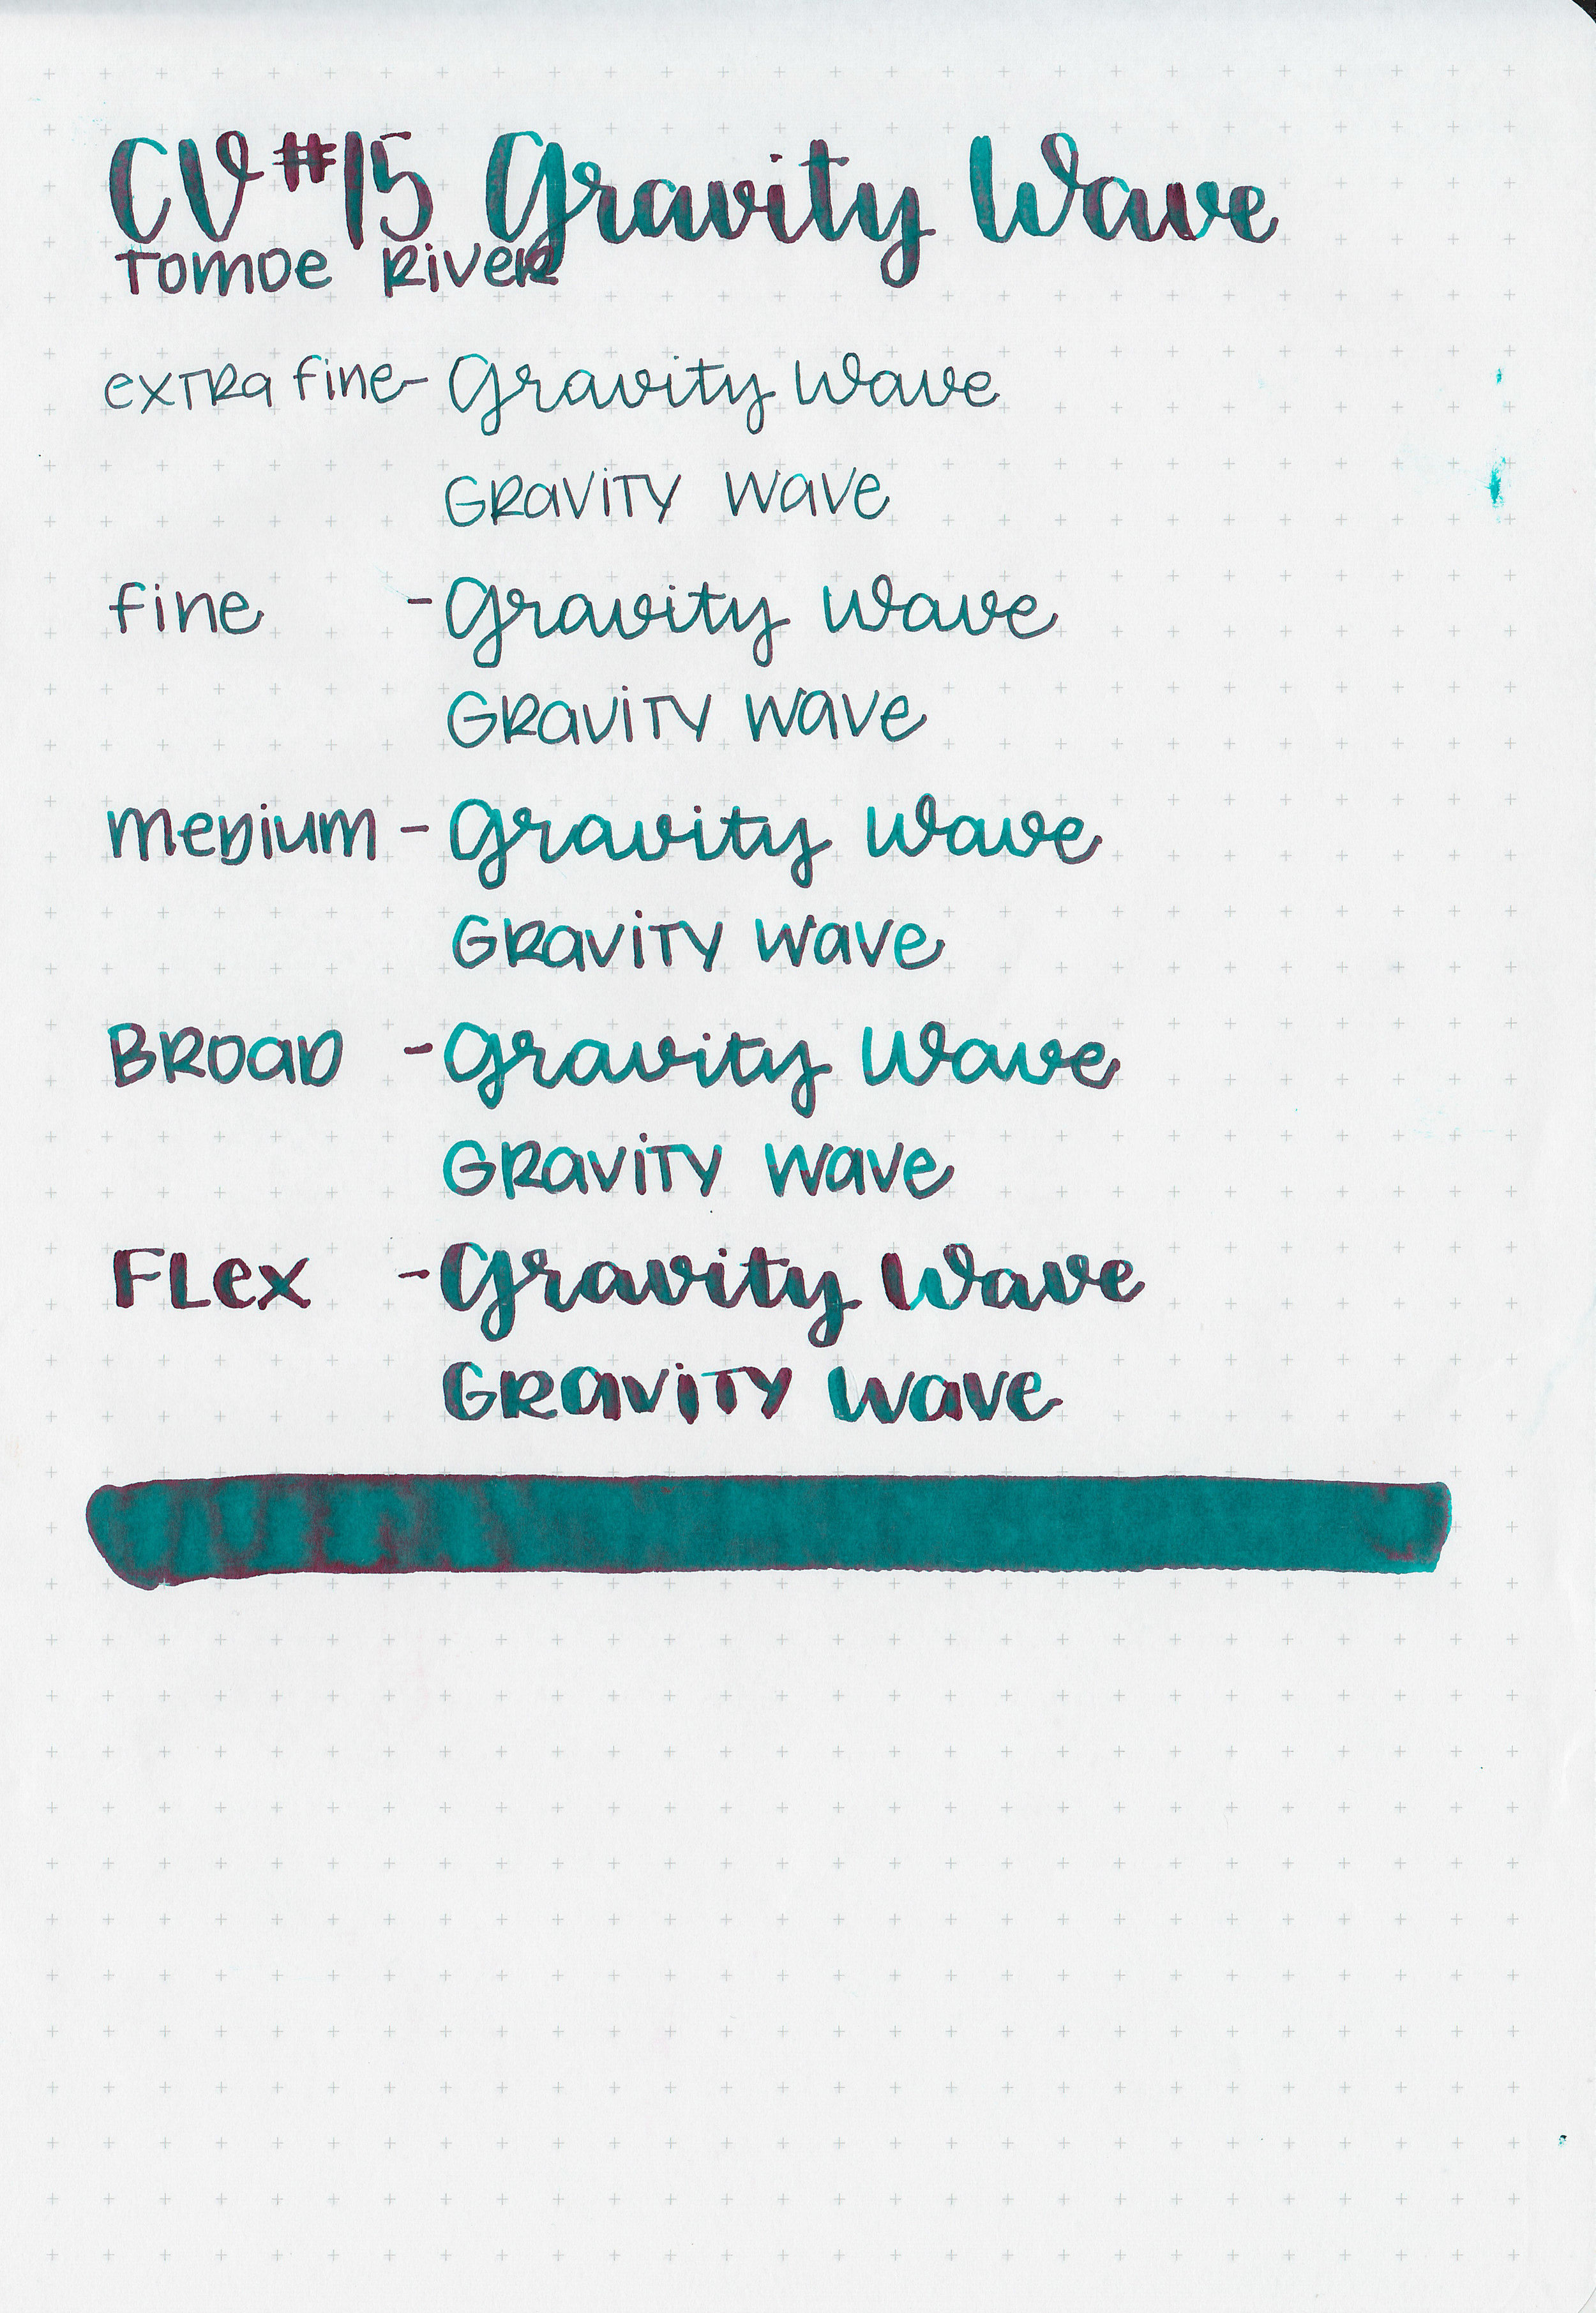 CV #15 Gravity Wave
Tomoe River
extra fine - Gravity Wave
Gravity Wave
fine - Gravity Wave
Gravity Wave
medium - Gravity Wave
Gravity Wave
Broad - Gravity Wave
Gravity Wave
Flex - Gravity Wave
Gravity Wave